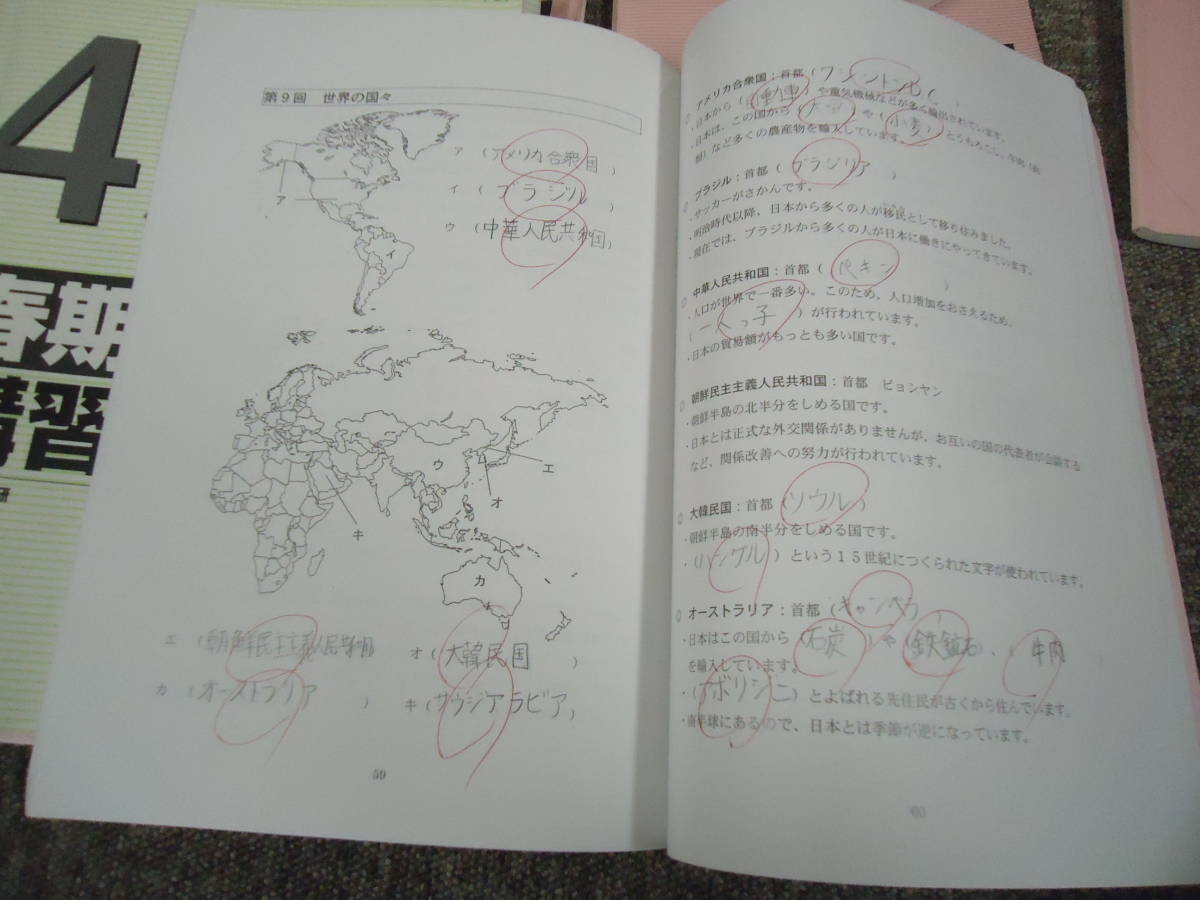 4
春期
講習
研
第9回 世界の国々
ア (アメリカ合衆国)
イ (ブラジル)
ウ (中華人民共和国)
ア
イ
ウ
エ
オ
キ
カ
エ (朝鮮民主主義人民共和国)
オ (大韓民国)
カ (オーストラリア)
キ (サウジアラビア)
59
◎ アメリカ合衆国:首都(ワシントン
・日本から(自動車)や電気機械などが多く輸出されています。
・日本は、この国から(大豆)や(小麦)とうもろこし、
類)など多くの農産物を輸入しています。
◎ ブラジル:首都(ブラジリア)
・サッカーがさかんです。
・明治時代以降、日本から多くの人が移民として移り住みました。
・現在では、ブラジルから多くの人が日本に働きにやってきています。
◎ 中華人民共和国:首都(ペキン)
・人口が世界で一番多い。このため、人口増加をおさえるため、
(一人っ子)が行われています。
・日本の貿易額がもっとも多い国です。
◎ 朝鮮民主主義人民共和国:首都 ピョンヤン
・朝鮮半島の北半分をしめる国です。
・日本とは正式な外交関係がありませんが、お互いの国の代表者が会談する
など、関係改善への努力が行われています。
◎ 大韓民国:首都(ソウル)
・朝鮮半島の南半分をしめる国です。
・(ハングル)という15世紀につくられた文字が使われています。
◎ オーストラリア:首都(キャンベラ)
・日本はこの国から(石炭)や(鉄鉱石)、(牛肉
を輸入しています。
・(アボリジニ)とよばれる先住民が古くから住んでいます。
・南半球にあるので、日本とは季節が逆になっています。
60